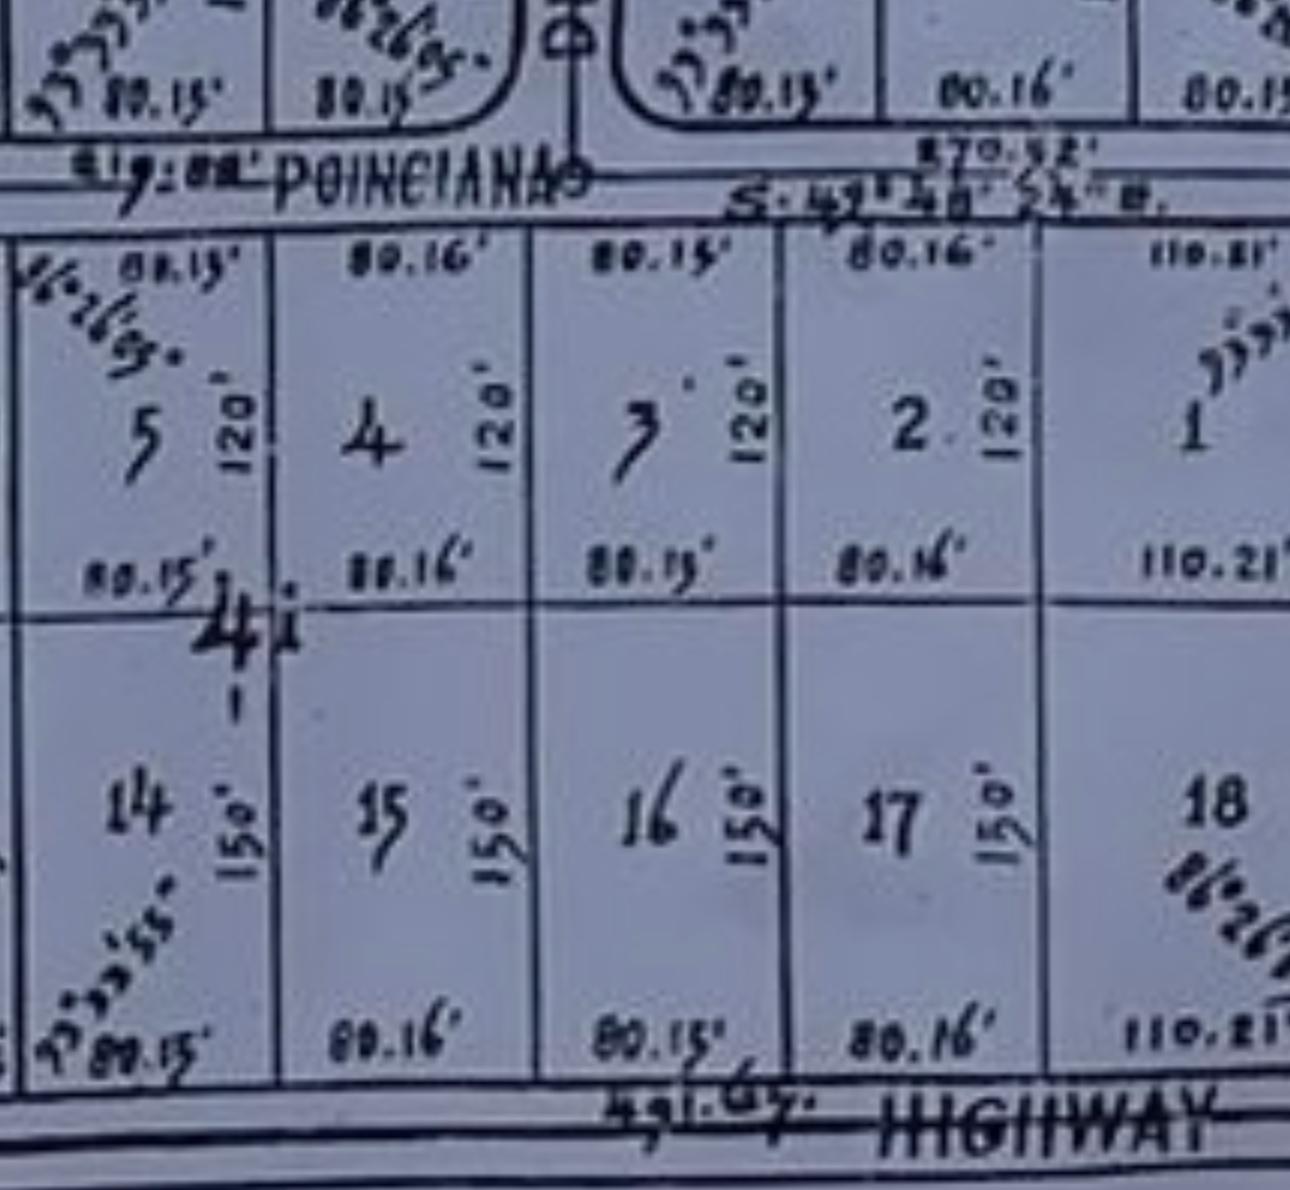 80.15' 80.15' 80.15' 80.16' 80.15
POINCIANA
S. 49° 48' 24" E.
80.15' 80.16' 80.15' 80.16' 110.21'
86°26'05"
5 120' 4 120' 3 120' 2 120' 1
80.15' 80.16' 80.15' 80.16' 110.21'
41
14 150' 15 150' 16 150' 17 150' 18
93°33'55"
86°26
80.15' 80.16' 80.15' 80.16' 110.21'
HIGHWAY